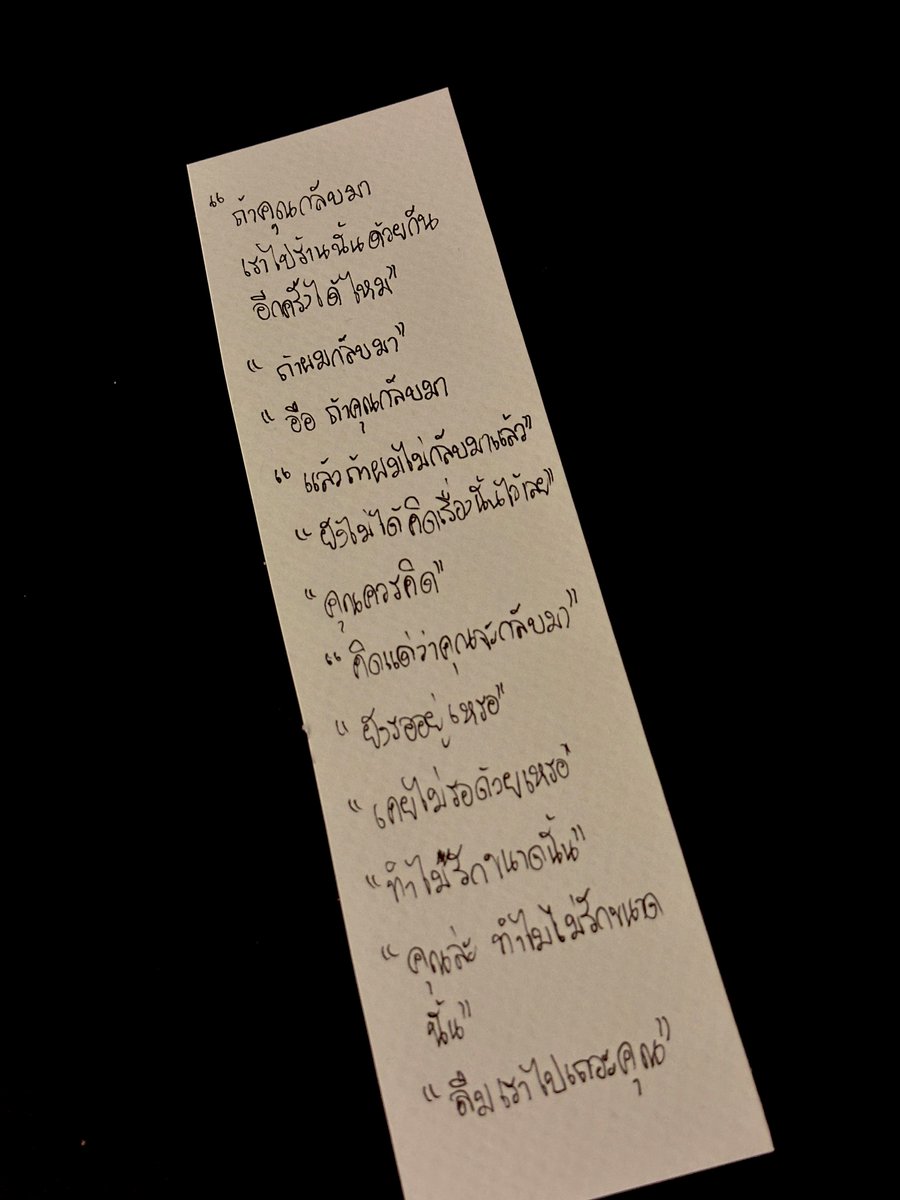 “ ถ้าคุณกลับมา
เราไปร้านนั้นด้วยกัน
อีกครั้งได้ไหม”
“ ถ้าผมกลับมา”
“ อือ ถ้าคุณกลับมา
“ แล้วถ้าผมไม่กลับมาแล้ว”
“ ยังไม่ได้คิดเรื่องนั้นไว้เลย”
“ คุณควรคิด”
“ คิดแต่ว่าคุณจะกลับมา”
“ ยังรออยู่เหรอ”
“ เคยไม่รอด้วยเหรอ”
“ ทำไมรักขนาดนั้น”
“ คุณล่ะ ทำไมไม่รักขนาด
นั้น”
“ ลืมเราไปเถอะคุณ”